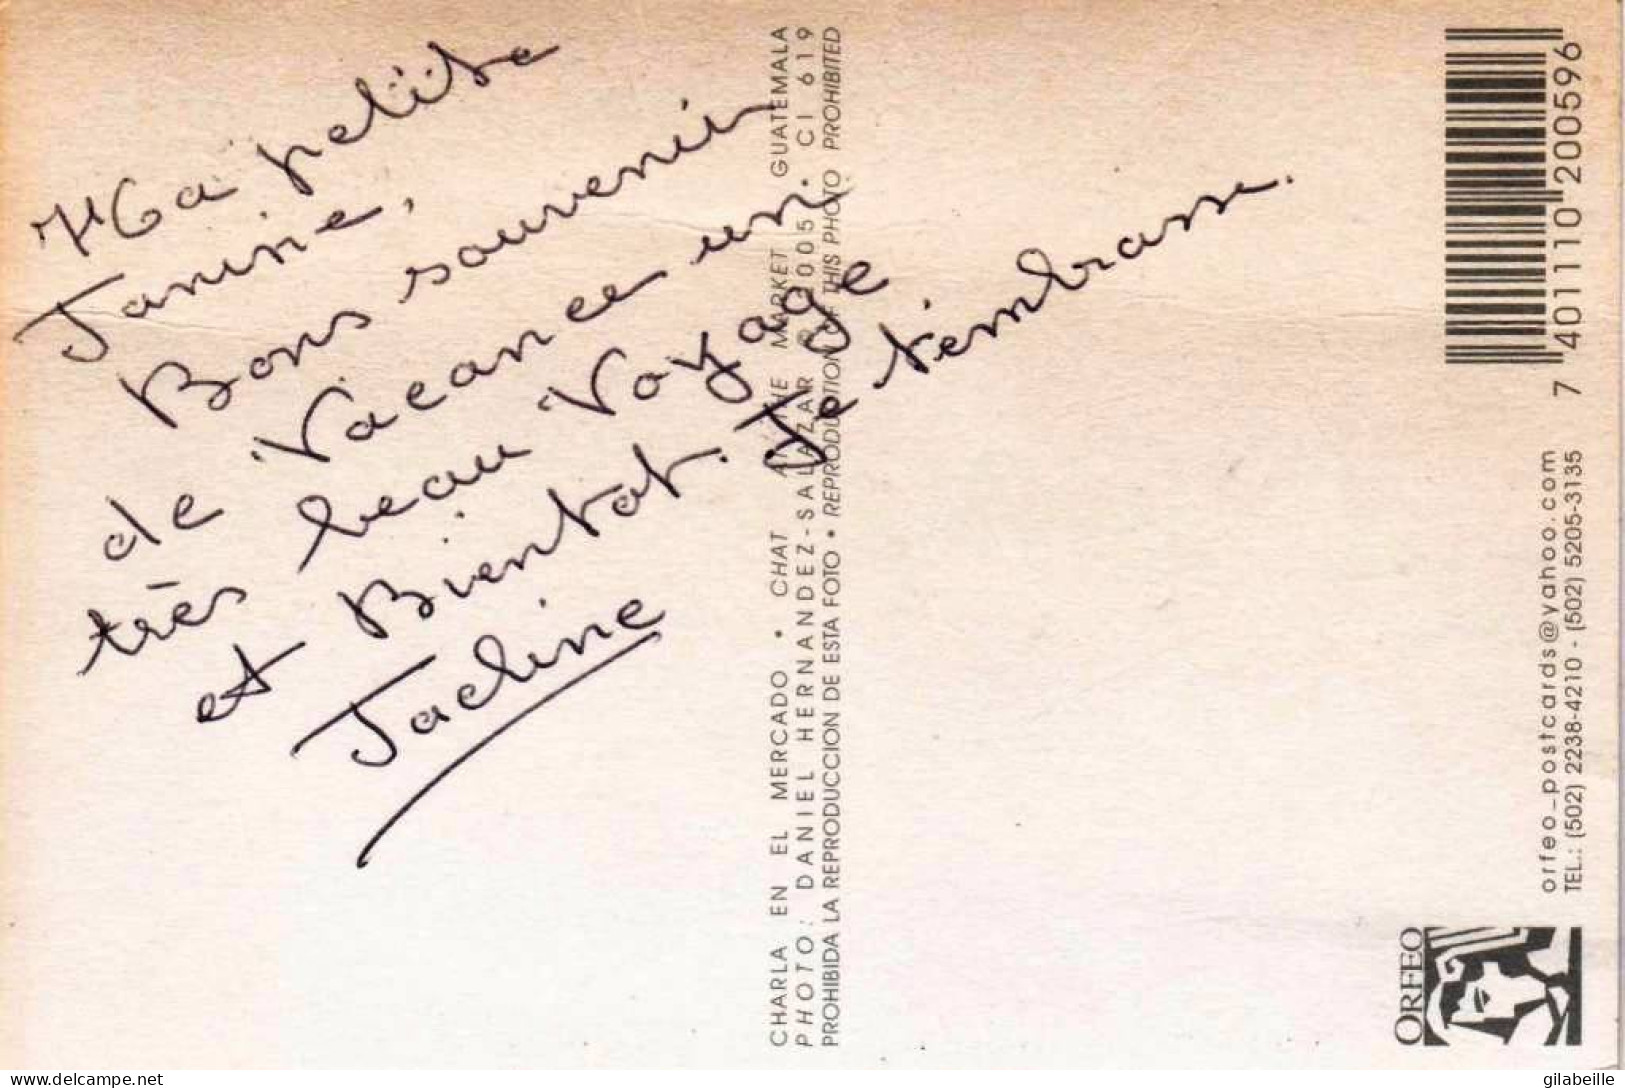 Ma petite
Janine,
Bons souvenir
de Vacance un
très beau Voyage
et Bientot. Je t'embrasse.
Jacline
CHARLA EN EL MERCADO • CHAT IN THE MARKET GUATEMALA
PHOTO: DANIEL HERNANDEZ-SALAZAR © 2005 CI 619
PROHIBIDA LA REPRODUCCION DE ESTA FOTO • REPRODUCTION OF THIS PHOTO PROHIBITED
7 401110 200596
orfeo_postcards@yahoo.com
TEL.: (502) 2238-4210 - (502) 5205-3135
ORFEO
www.delcampe.net
gilabeille